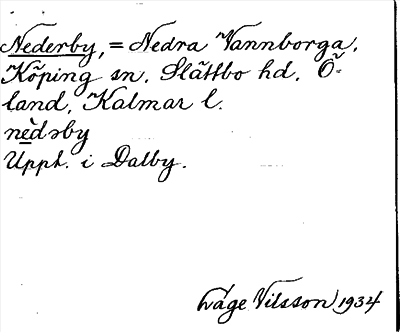 Nederby, = Nedra Vannborga,
Köping sn, Slättbo hd, Ö-
land, Kalmar l.
nèdəby
Uppt. i Dalby.
Wåge Nilsson 1934